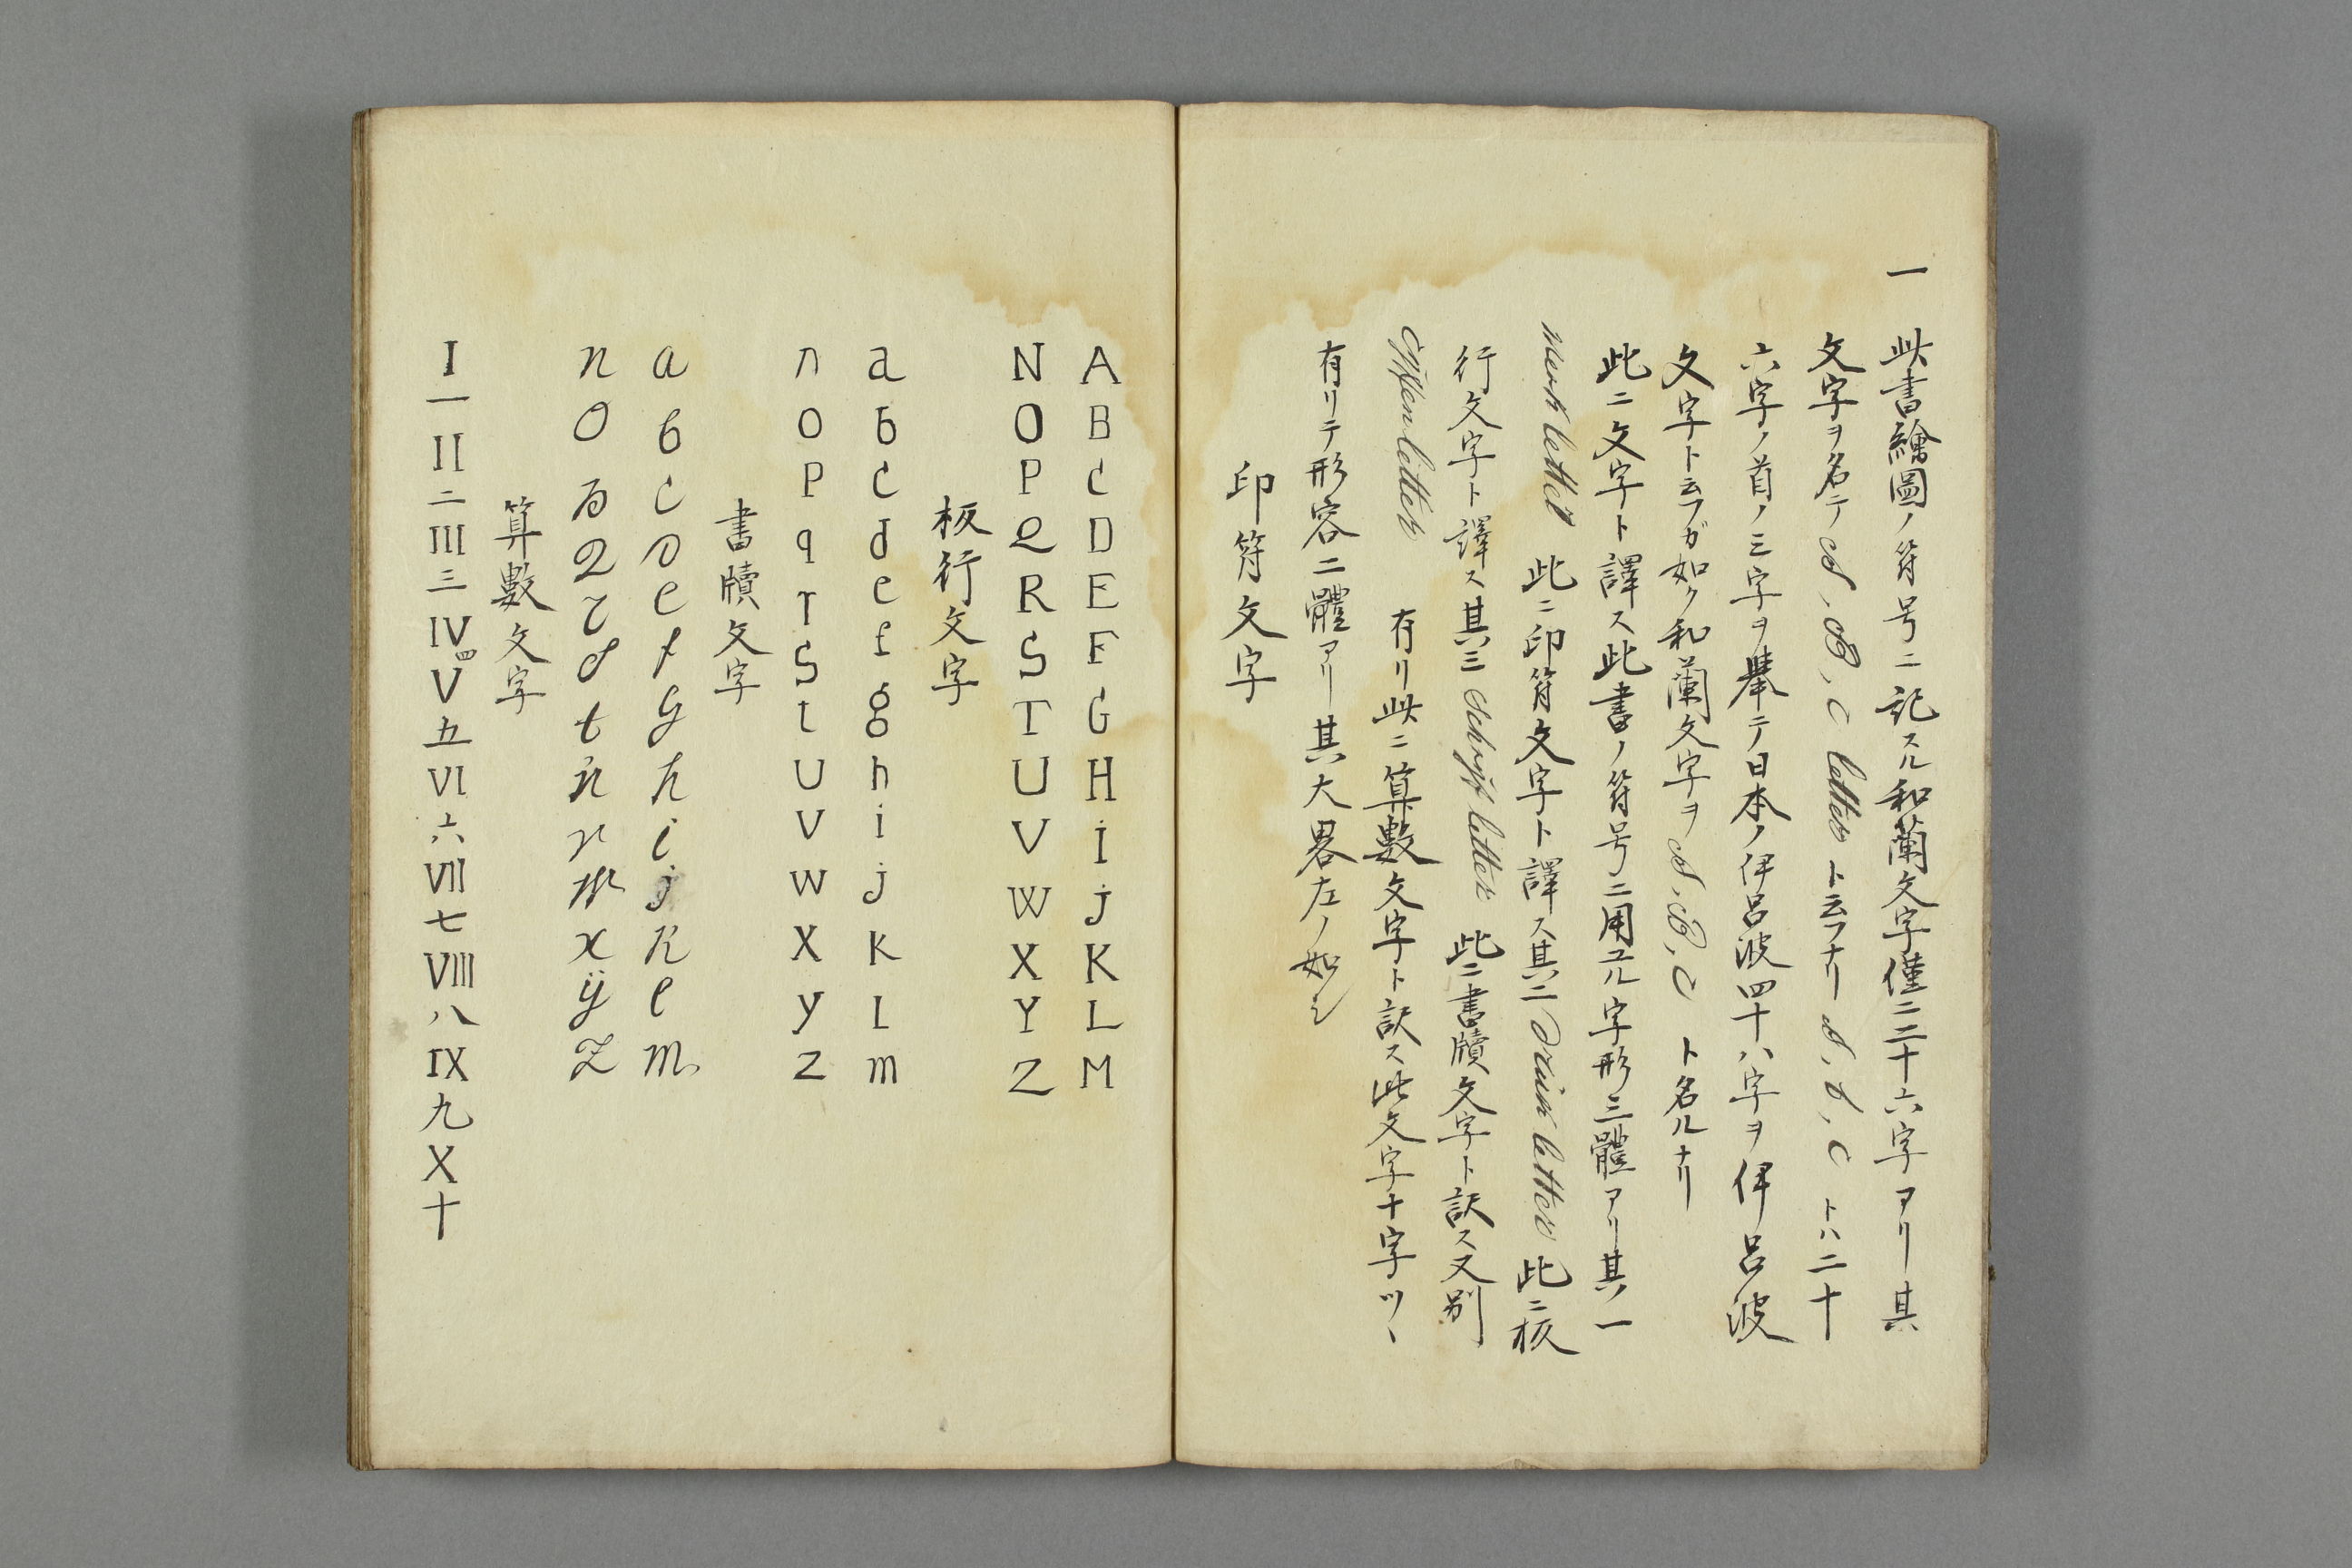 一
此書繪圖ノ符号ニ記スル和蘭文字僅ニ二十六字アリ其
文字ヲ名テ A, B, C letter ト云フナリ A, B, C トハ二十
六字ノ首ノ三字ヲ舉テ日本ノ伊呂波四十八字ヲ伊呂波
文字ト云フガ如ク和蘭文字ヲ A, B, C ト名ルナリ
此ニ文字ト譯ス此書ノ符号ニ用ユル字形三體アリ其一
merk letter 此ニ印符文字ト譯ス其二 Druk letter 此ニ板
行文字ト譯ス其三 Schrijf letter 此ニ書牘文字ト訳ス又別
Cijffen letter 有リ此ニ算數文字ト訳ス此文字十字ツヽ
有リテ形容二體アリ其大畧左ノ如シ
印符文字
A B C D E F G H I j K L M
N O P Q R S T U V W X Y Z
板行文字
a b c d e f g h i j k l m
n o p q r s t u v w x y z
書牘文字
a b c d e f g h i j k l m
n o p q r s t u v w x ÿ z
算數文字
I 一 II 二 III 三 IV 四 V 五 VI 六 VII 七 VIII 八 IX 九 X 十